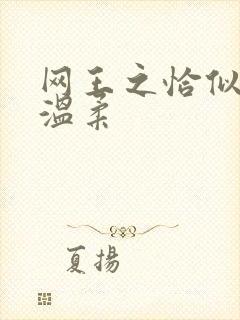 网王之恰似
温柔
夏揚